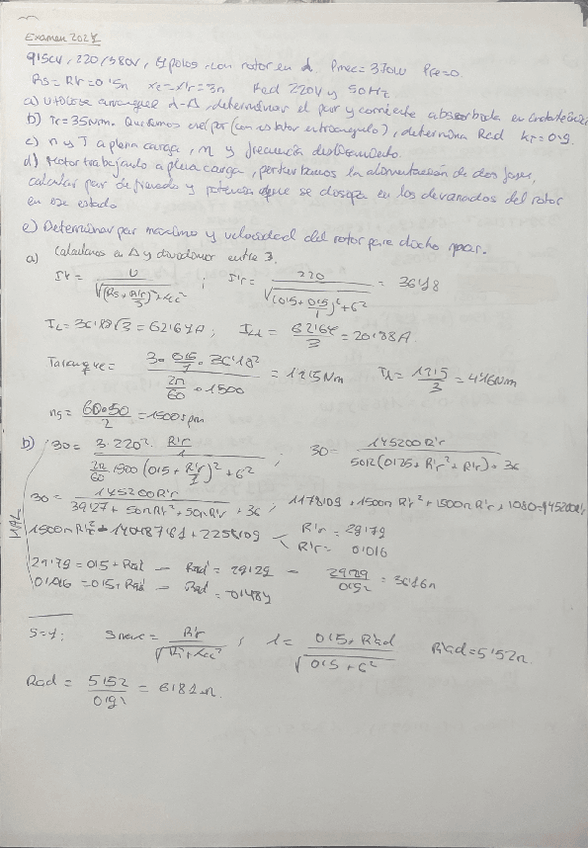 Examen 2021
0'15CV, 220/380V, 4 polos, con rotor en λ. Pmec=370W PFe=0.
Rs=R'r=0'5Ω Xs=X'r=3Ω Red 220V y 50Hz
a) Utilícese arranque λ-Δ, determinar el par y corriente absorbida en
b) Tr=35Nm. Queremos el par (con estator en triangulo), determina Rad kr=0'9.
c) n y T a plena carga, η y frecuencia deslizamiento.
d) Motor trabajando a plena carga, la alimentación de dos fases,
calcular par de frenado y potencia que se disipa en los devanados del rotor
en ese estado
e) Determinar par máximo y velocidad del rotor para dicho par.
a) Calculamos en Δ y dividimos entre 3.
I'r = U / √((Rs+R'r/s)²+Xcc²) ; I'r = 220 / √((0'5+0'5/1)²+6²) = 36'18
IL=36'18√3=62'67A; ILλ = 62'67/3 = 20'88A
Tarranque = 3·0'5·36'18² / (2π/60 · 1500) = 12'5Nm Tλ = 12'5/3 = 4'16Nm
ns = 60·50/2 = 1500rpm
b) 30 = 3·220²·R'r/1 / (2π/60 1500 (0'5+R'r/1)²+6²) ; 30 = 145200R'r / (50π(0'25+R'r²+R'r)+36
30 = 145200R'r / (39'27+50πR'r²+50πR'r+36 ; 1178'09+1500πR'r²+1500πR'r+1080=145200R'r
1500πR'r² - 140487'61+2258'09 R'r = 29'79
R'r = 0'016
MAL
29'79=0'5+R'ad → R'ad=29'29 → 29'29/0'9² = 36'16Ω
0'016=0'5+R'ad → R'ad = -0'484
S=1: Smax = R'r / √(R²+Xcc²) ; 1 = 0'5+R'ad / √(0'5+6² R'ad=5'52Ω.
Rad = 5'52/0'9² = 6'81Ω.